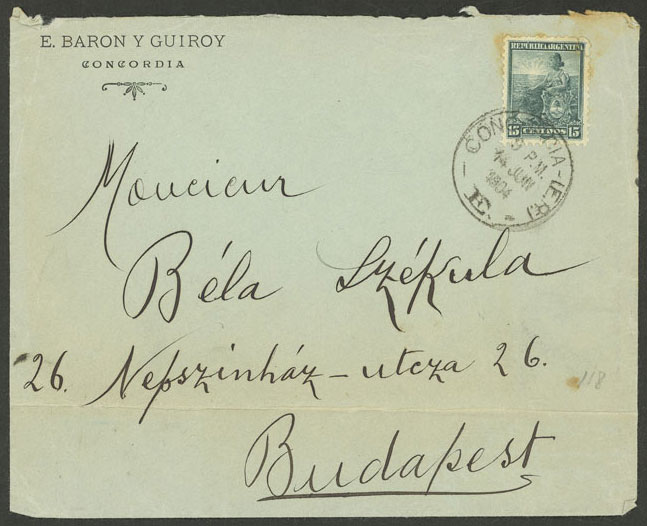 E. BARON Y GUIROY
CONCORDIA
REPÚBLICA ARGENTINA
15 CENTAVOS 15
CONCORDIA-(E.R)
9 P.M.
14 JUN
1904
E
Moucieur
Béla Székula
26. Nepszinház-utcza 26.
Budapest
118